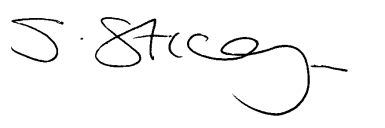 S. Stacey